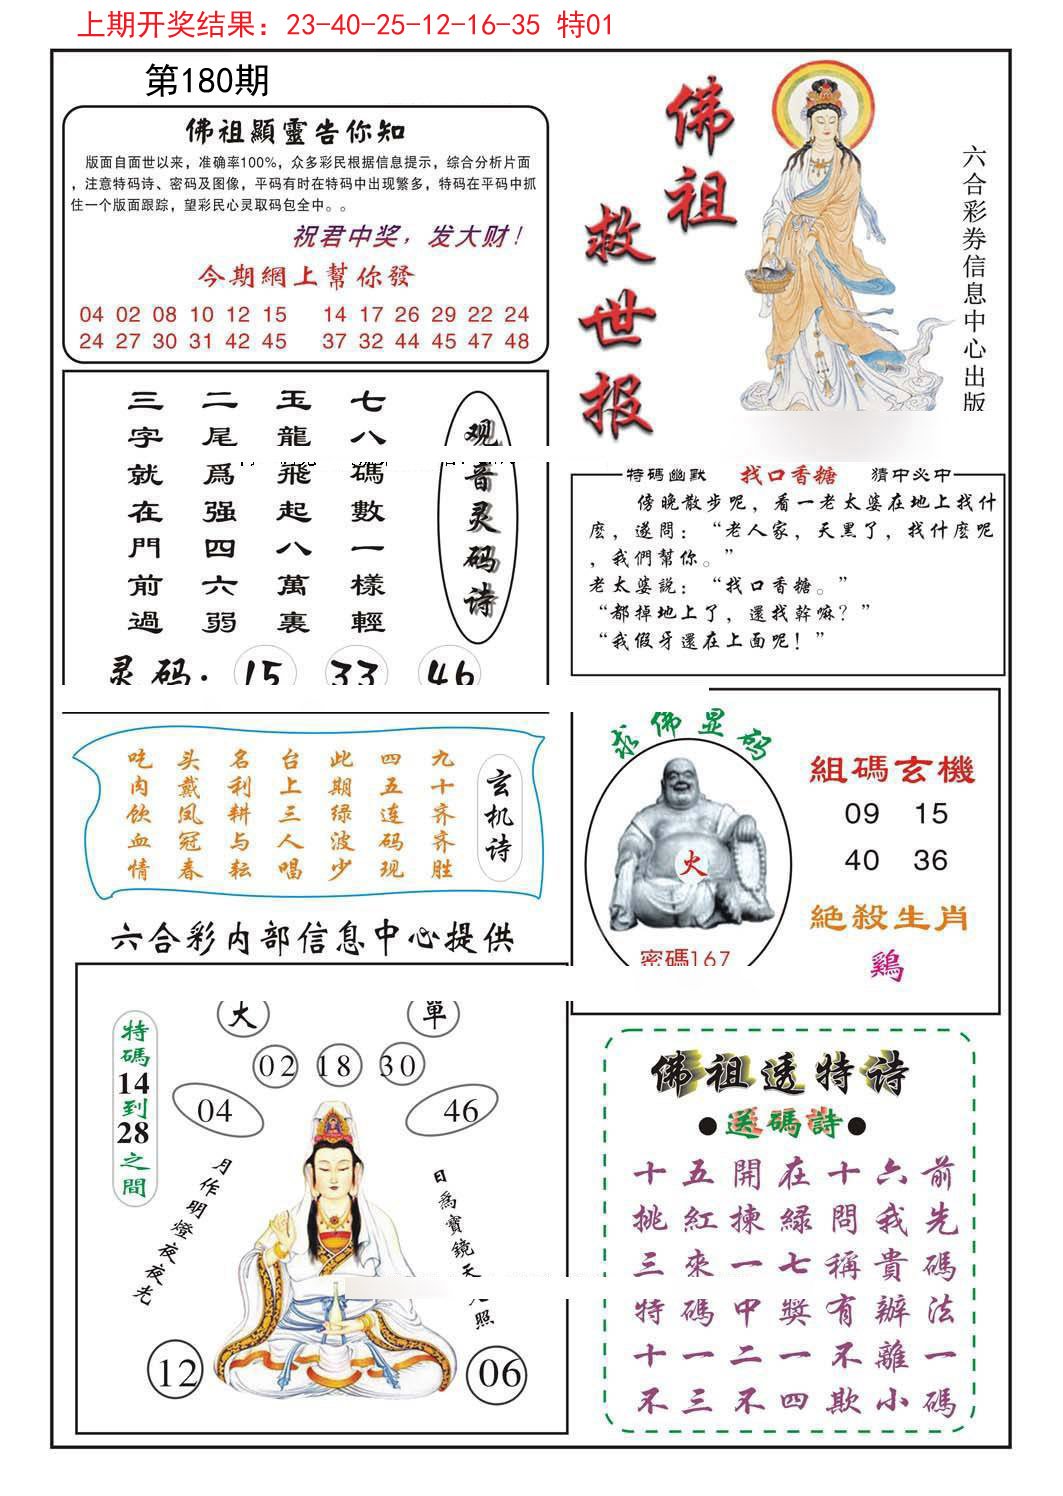 上期开奖结果：23-40-25-12-16-35 特01
第180期
佛祖顯靈告你知
版面自面世以来，准确率100%，众多彩民根据信息提示，综合分析片面
，注意特码诗、密码及图像，平码有时在特码中出现繁多，特码在平码中抓
住一个版面跟踪，望彩民心灵取码包全中。。
祝君中奖，发大财！
今期網上幫你發
04 02 08 10 12 15 14 17 26 29 22 24
24 27 30 31 42 45 37 32 44 45 47 48
佛祖
救世报
六合彩券信息中心出版
观音灵码诗
七八碼數一樣輕
玉龍飛起八萬裏
二尾爲强四六弱
三字就在門前過
灵码：15 33 46
特碼幽默 找口香糖 猜中必中
傍晚散步呢，看一老太婆在地上找什
麽，遂問：“老人家，天黑了，找什麽呢
，我們幫你。”
老太婆説：“找口香糖。”
“都掉地上了，還找幹嘛？”
“我假牙還在上面呢！”
玄机诗
九十齐齐胜
四五连码现
此期绿波少
台上三人唱
名利耕与耘
头戴凤冠春
吃肉饮血情
六合彩内部信息中心提供
求佛显码
火
密碼167
組碼玄機
09 15
40 36
絶殺生肖
鷄
特碼14到28之間
大 單
02 18 30
04 46
月作明燈夜夜光
日爲寶鏡天
照
12 06
佛祖透特诗
●送碼詩●
十五開在十六前
挑紅揀緑問我先
三來一七稱貴碼
特碼中獎有辦法
十一二一不離一
不三不四欺小碼